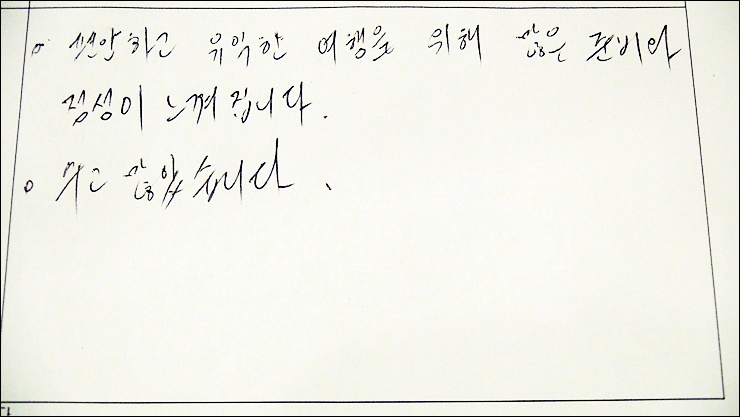 o 편안하고 유익한 여행을 위해 많은 준비와
정성이 느껴집니다.
o 수고 많았습니다.